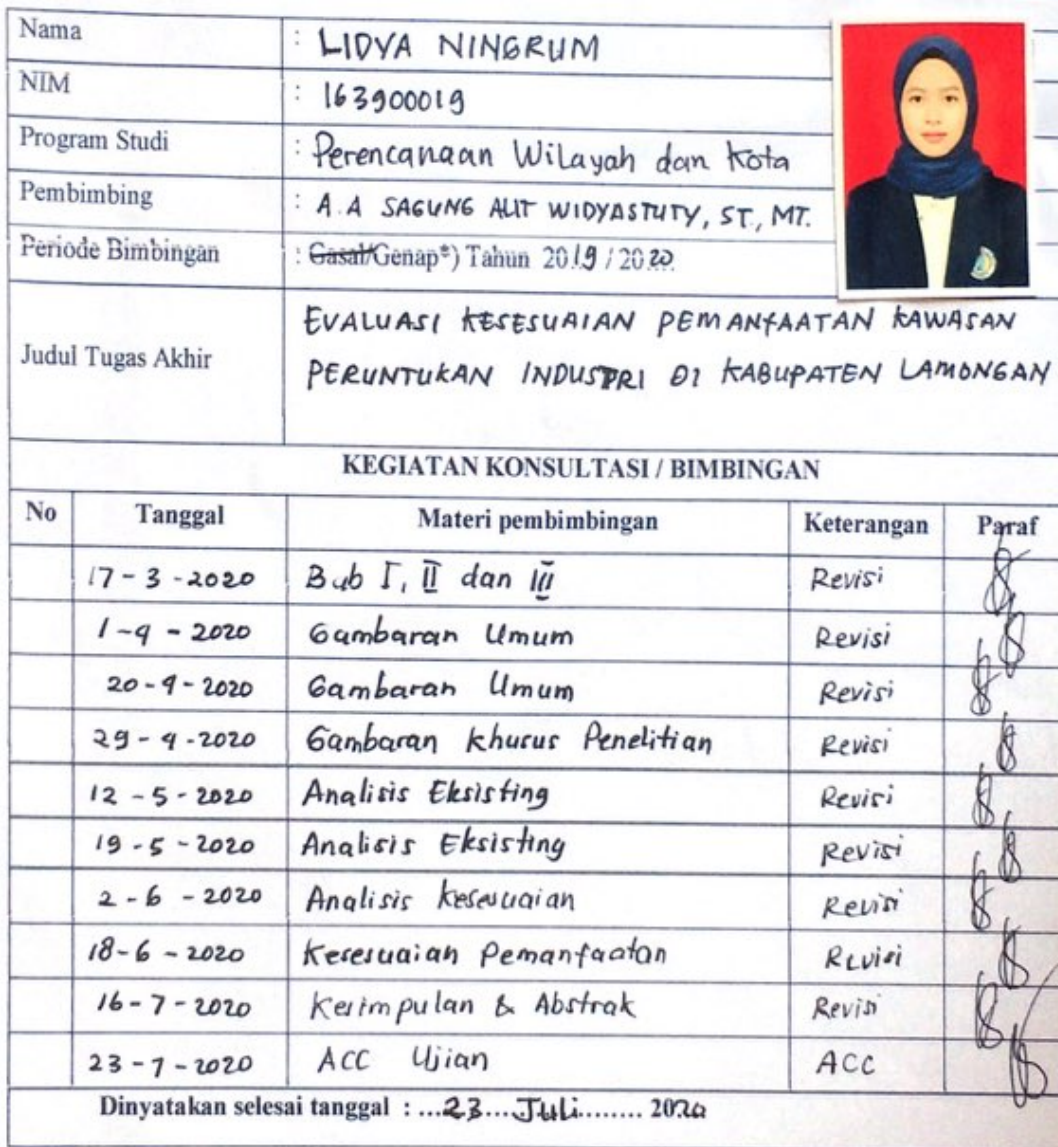 Nama : LIDYA NINGRUM
NIM : 163900019
Program Studi : Perencanaan Wilayah dan Kota
Pembimbing : A.A SAGUNG ALIT WIDYASTUTY, ST., MT.
Periode Bimbingan : Gasal/Genap*) Tahun 2019 / 2020
Judul Tugas Akhir
EVALUASI KESESUAIAN PEMANFAATAN KAWASAN
PERUNTUKAN INDUSTRI DI KABUPATEN LAMONGAN
KEGIATAN KONSULTASI / BIMBINGAN
No Tanggal Materi pembimbingan Keterangan Paraf
17-3-2020 Bab I, II dan III Revisi
1-4-2020 Gambaran Umum Revisi
20-4-2020 Gambaran Umum Revisi
29-4-2020 Gambaran khusus Penelitian Revisi
12-5-2020 Analisis Eksisting Revisi
19-5-2020 Analisis Eksisting Revisi
2-6-2020 Analisis Kesesuaian Revisi
18-6-2020 Kesesuaian Pemanfaatan Revisi
16-7-2020 Kesimpulan & Abstrak Revisi
23-7-2020 ACC Ujian ACC
Dinyatakan selesai tanggal : ...23...Juli........ 2020